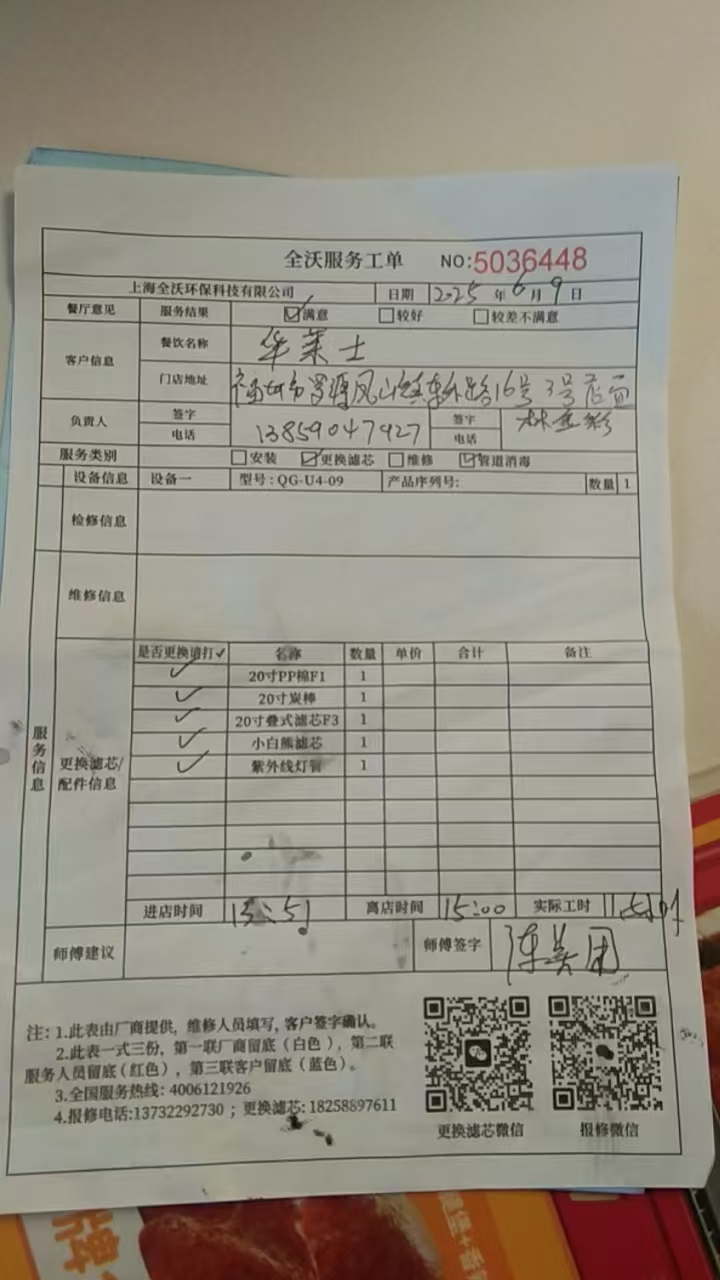 全沃服务工单 NO:5036448
上海全沃环保科技有限公司 日期 2025 年 6 月 9 日
餐厅意见 服务结果 ☑满意 □较好 □较差不满意
客户信息 餐饮名称 华莱士
门店地址 福州市罗源凤山镇东外路16号3号店面
负责人 签字 电话 13859047927 签字 电话 林
服务类别 □安装 ☑更换滤芯 □维修 ☑管道消毒
设备信息 设备一 型号:QG-U4-09 产品序列号: 数量 1
检修信息
维修信息
服务信息
更换滤芯/配件信息
是否更换请打✓ 名称 数量 单价 合计 备注
✓ 20寸PP棉F1 1
✓ 20寸炭棒 1
✓ 20寸叠式滤芯F3 1
✓ 小白熊滤芯 1
✓ 紫外线灯管 1
进店时间 13:51 离店时间 15:00 实际工时
师傅建议 师傅签字 陈美团
注: 1.此表由厂商提供, 维修人员填写, 客户签字确认。
2.此表一式三份, 第一联厂商留底(白色), 第二联
服务人员留底(红色), 第三联客户留底(蓝色)。
3.全国服务热线: 4006121926
4.报修电话:13732292730 ; 更换滤芯: 18258897611
更换滤芯微信 报修微信